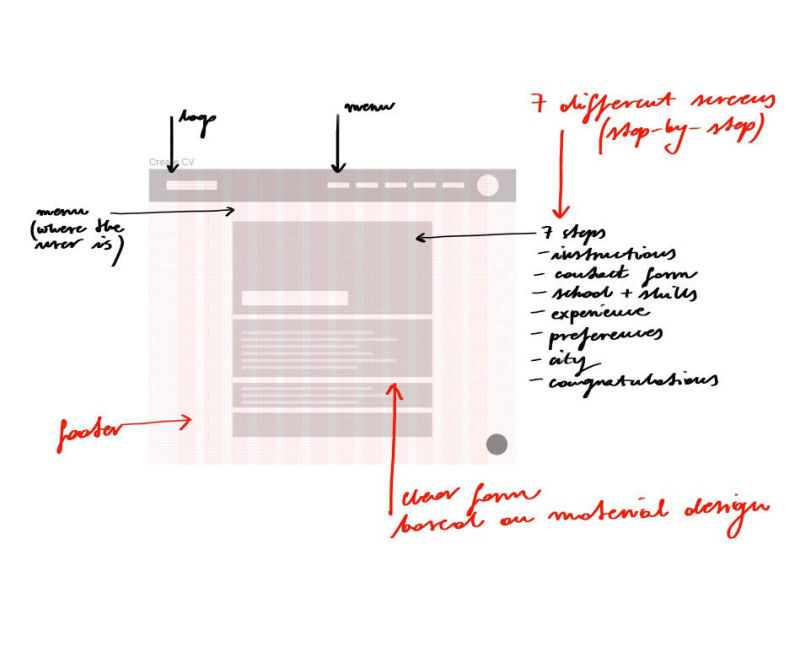 logo
menu
7 different screens
(step-by-step)
Create CV
menu
(where the
user is)
7 steps
- instructions
- contact form
- school + skills
- experience
- preferences
- city
- congratulations
footer
clear form
based on material design